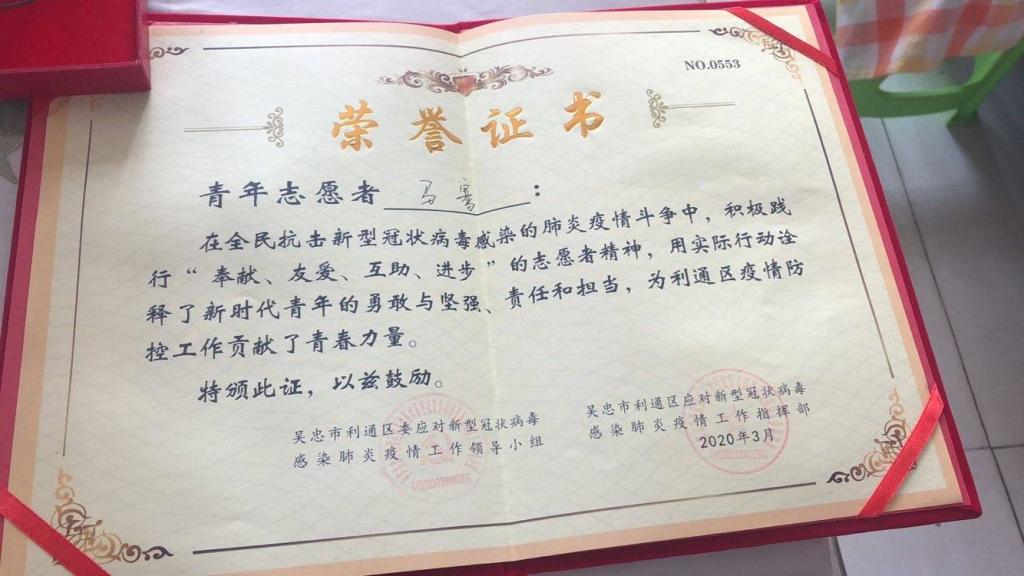 NO.0553
荣誉证书
青年志愿者 马骞：
在全民抗击新型冠状病毒感染的肺炎疫情斗争中，积极践
行“奉献、友爱、互助、进步”的志愿者精神，用实际行动诠
释了新时代青年的勇敢与坚强、责任和担当，为利通区疫情防
控工作贡献了青春力量。
特颁此证，以兹鼓励。
吴忠市利通区委应对新型冠状病毒
感染肺炎疫情工作领导小组
吴忠市利通区应对新型冠状病毒
感染肺炎疫情工作指挥部
2020年3月